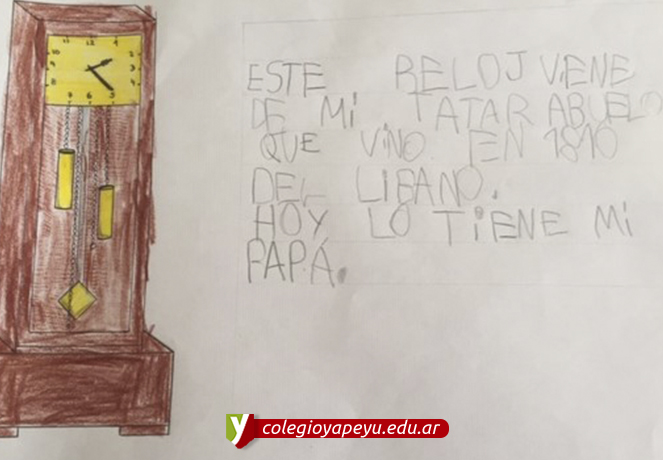 11 12 1
10 2
9 3
8 4
7 6 5
ESTE RELOJ VIENE
DE MI TATARABUELO
QUE VINO EN 1810
DEL LIBANO.
HOY LO TIENE MI
PAPÁ.
y colegioyapeyu.edu.ar